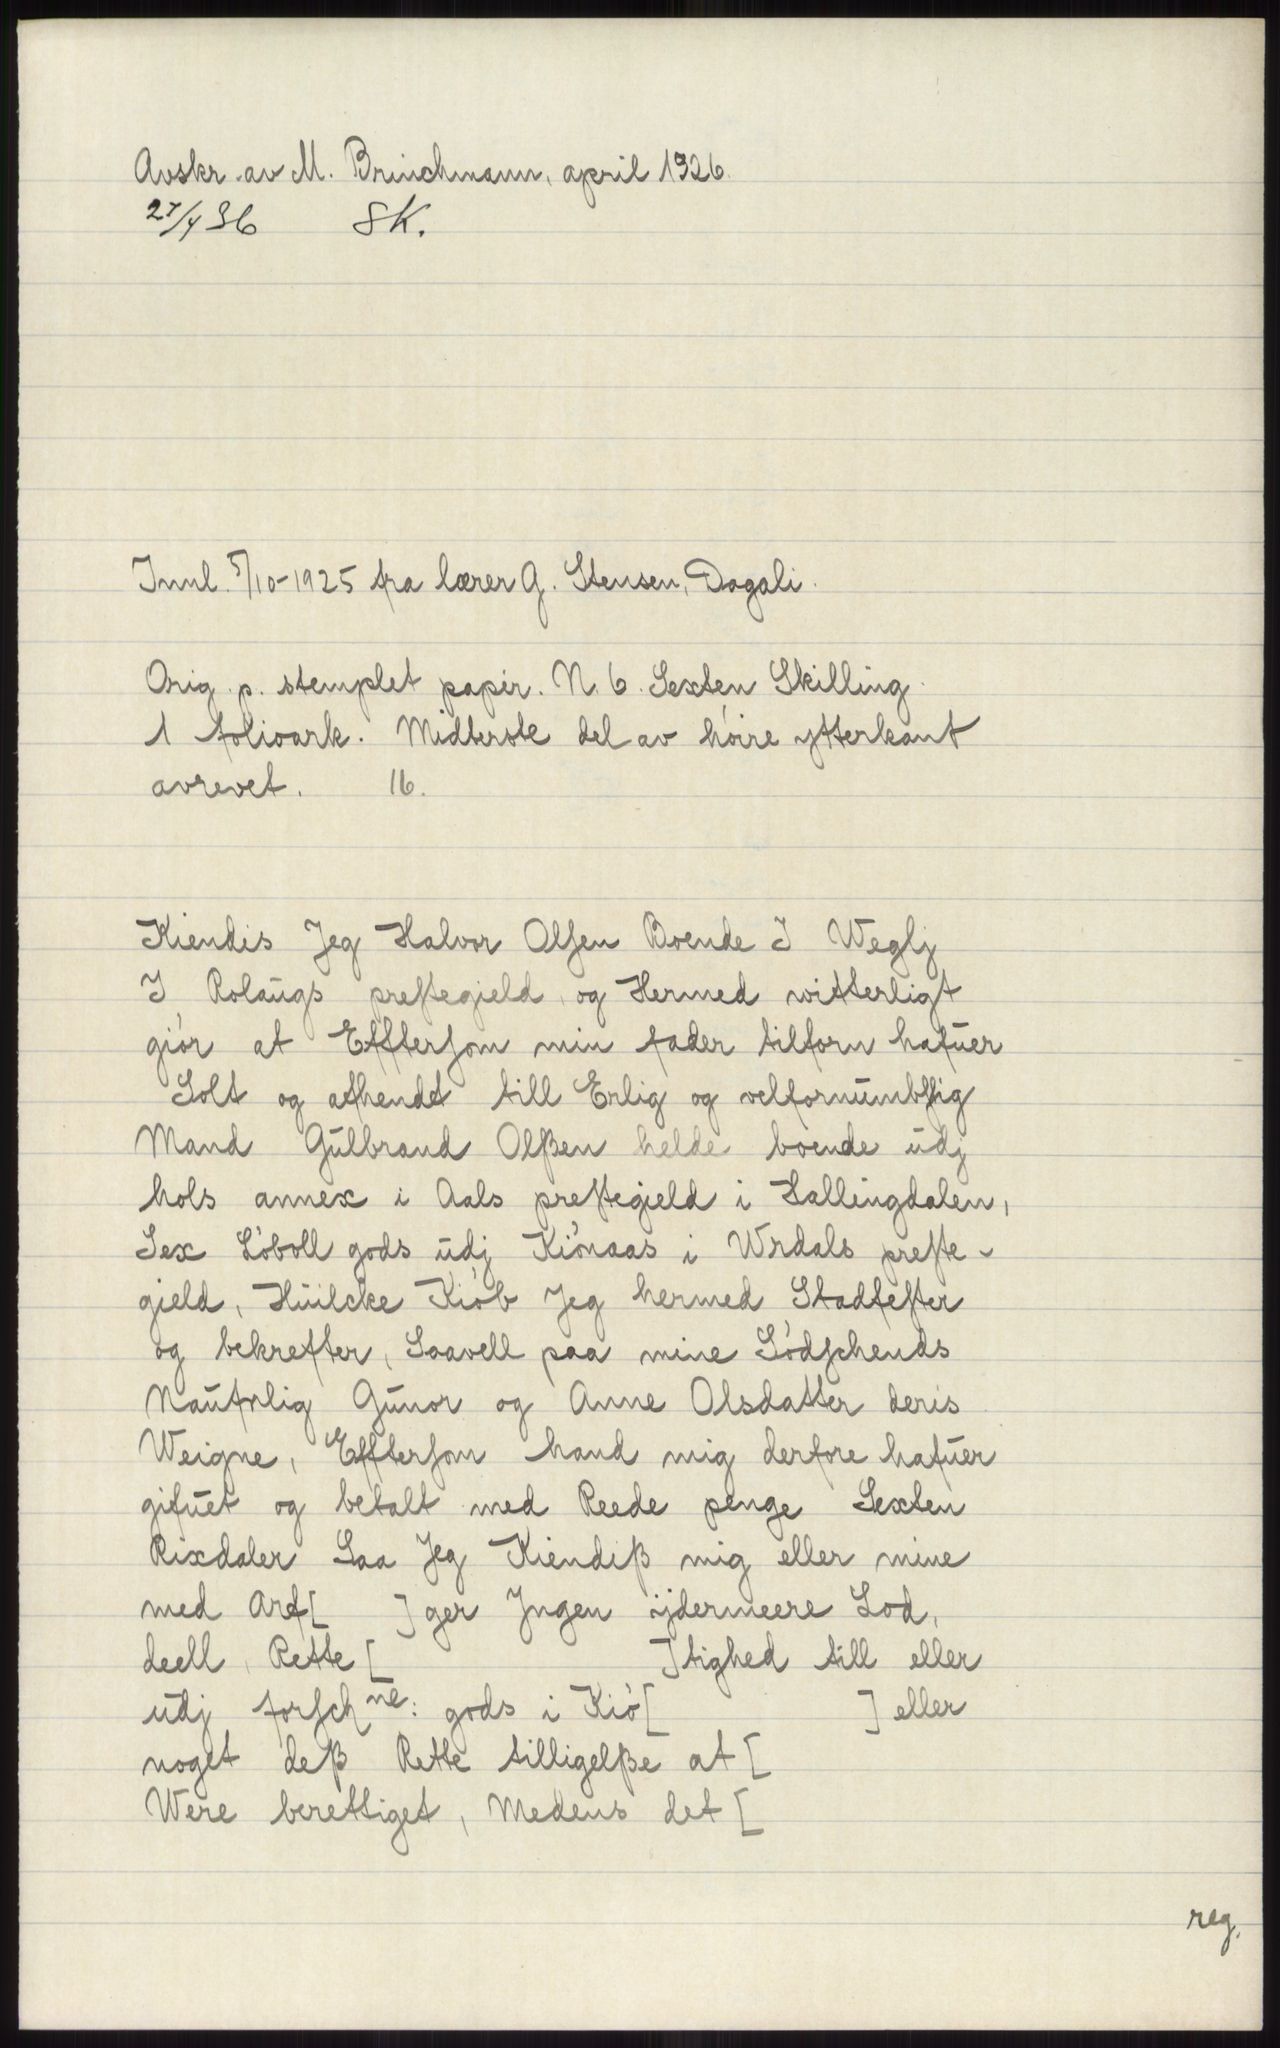 Avskr. av M. Brinchmann, april 1926.
27/4 36 SK.
Innl. 5/10-1925 fra lærer G. Stensen, Dagali.
Orig. p. stemplet papir. N. 6. Sexten Skilling.
1 folioark. Midterste del av höire ytterkant
avrevet. 16.
Kiendis Jeg Halvor Olsen Boende I Weglj
I Rolaugs prestegield, og Hermed witterligt
giör at Efftersom min fader tilforn hafuer
Solt og afhendt till Erlig og velfornumbstig
Mand Gulbrand Olßen helde boende udj
hols annex i Aals prestegield i Hallingdalen,
Sex Löboll gods udj Kiönaas i Wrdals preste-
gield, Huilcke Kiöb Jeg hermed Stadfester
og bekrefter, Saavell paa mine Södschends
Naufnlig Gunor og Anne Olsdatter deris
Weigne, Efftersom hand mig derfore hafuer
gifuet og betalt med Reede penge Sexten
Rixdaler Saa Jeg Kiendiß mig eller mine
med Arf[ ]ger Jngen ijdermeere Lod,
deell, Rette [ ]tighed till eller
udj forschne: gods i Kiö[ ] eller
noget deß Rette tilligelße at [
Were berettiget, Medens det [
reg.